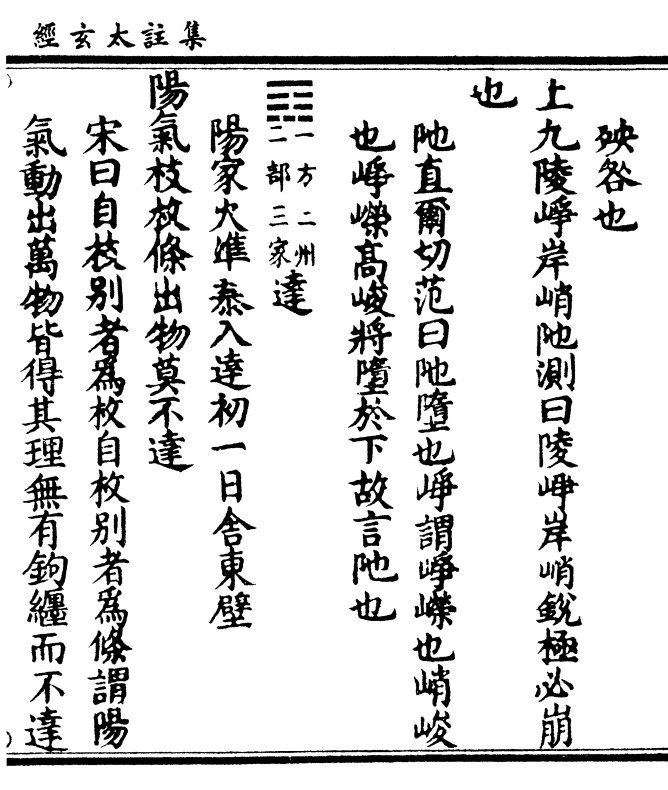 集註太玄經
殃咎也
上九陵崢岸峭阤測曰陵崢岸峭銳極必崩
也
阤直爾切范曰阤墮也崢謂崢嶸也峭峻
也崢嶸高峻將墮於下故言阤也
一方二州
二部三家
達
陽家火準泰入達初一日舍東壁
陽氣枝枚條出物莫不達
宋曰自枝別者為枚自枚別者為條謂陽
氣動出萬物皆得其理無有鉤纏而不達